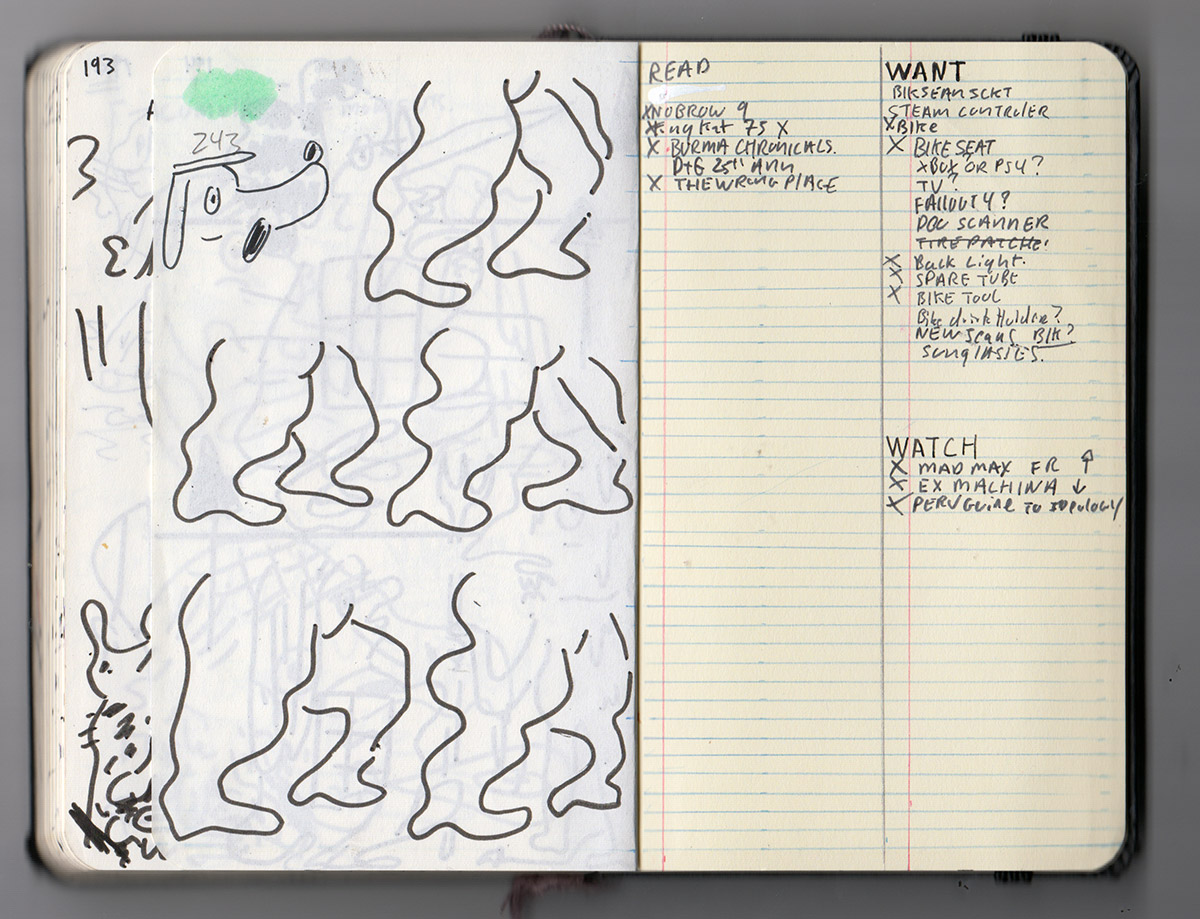 193
243
READ
XNOBROW 9
X KingKat 75 X
X BURMA CHRONICALS.
D+G 25th ANN
X THE WRONG PLACE
WANT
STEAM CONTROLER
XBike
X BIKE SEAT
XBOX OR PS4?
TV?
FALLOUT 4?
DOC SCANNER
TIRE PATCHE!
X Back Light.
X SPARE TUBE
X BIKE TOOL
Bike drink Holder?
NEW BIK?
SUNGLASSES.
WATCH
X MAD MAX FR ↑
X EX MACHINA ↓
X PERV GUIDE TO IDEOLOGY